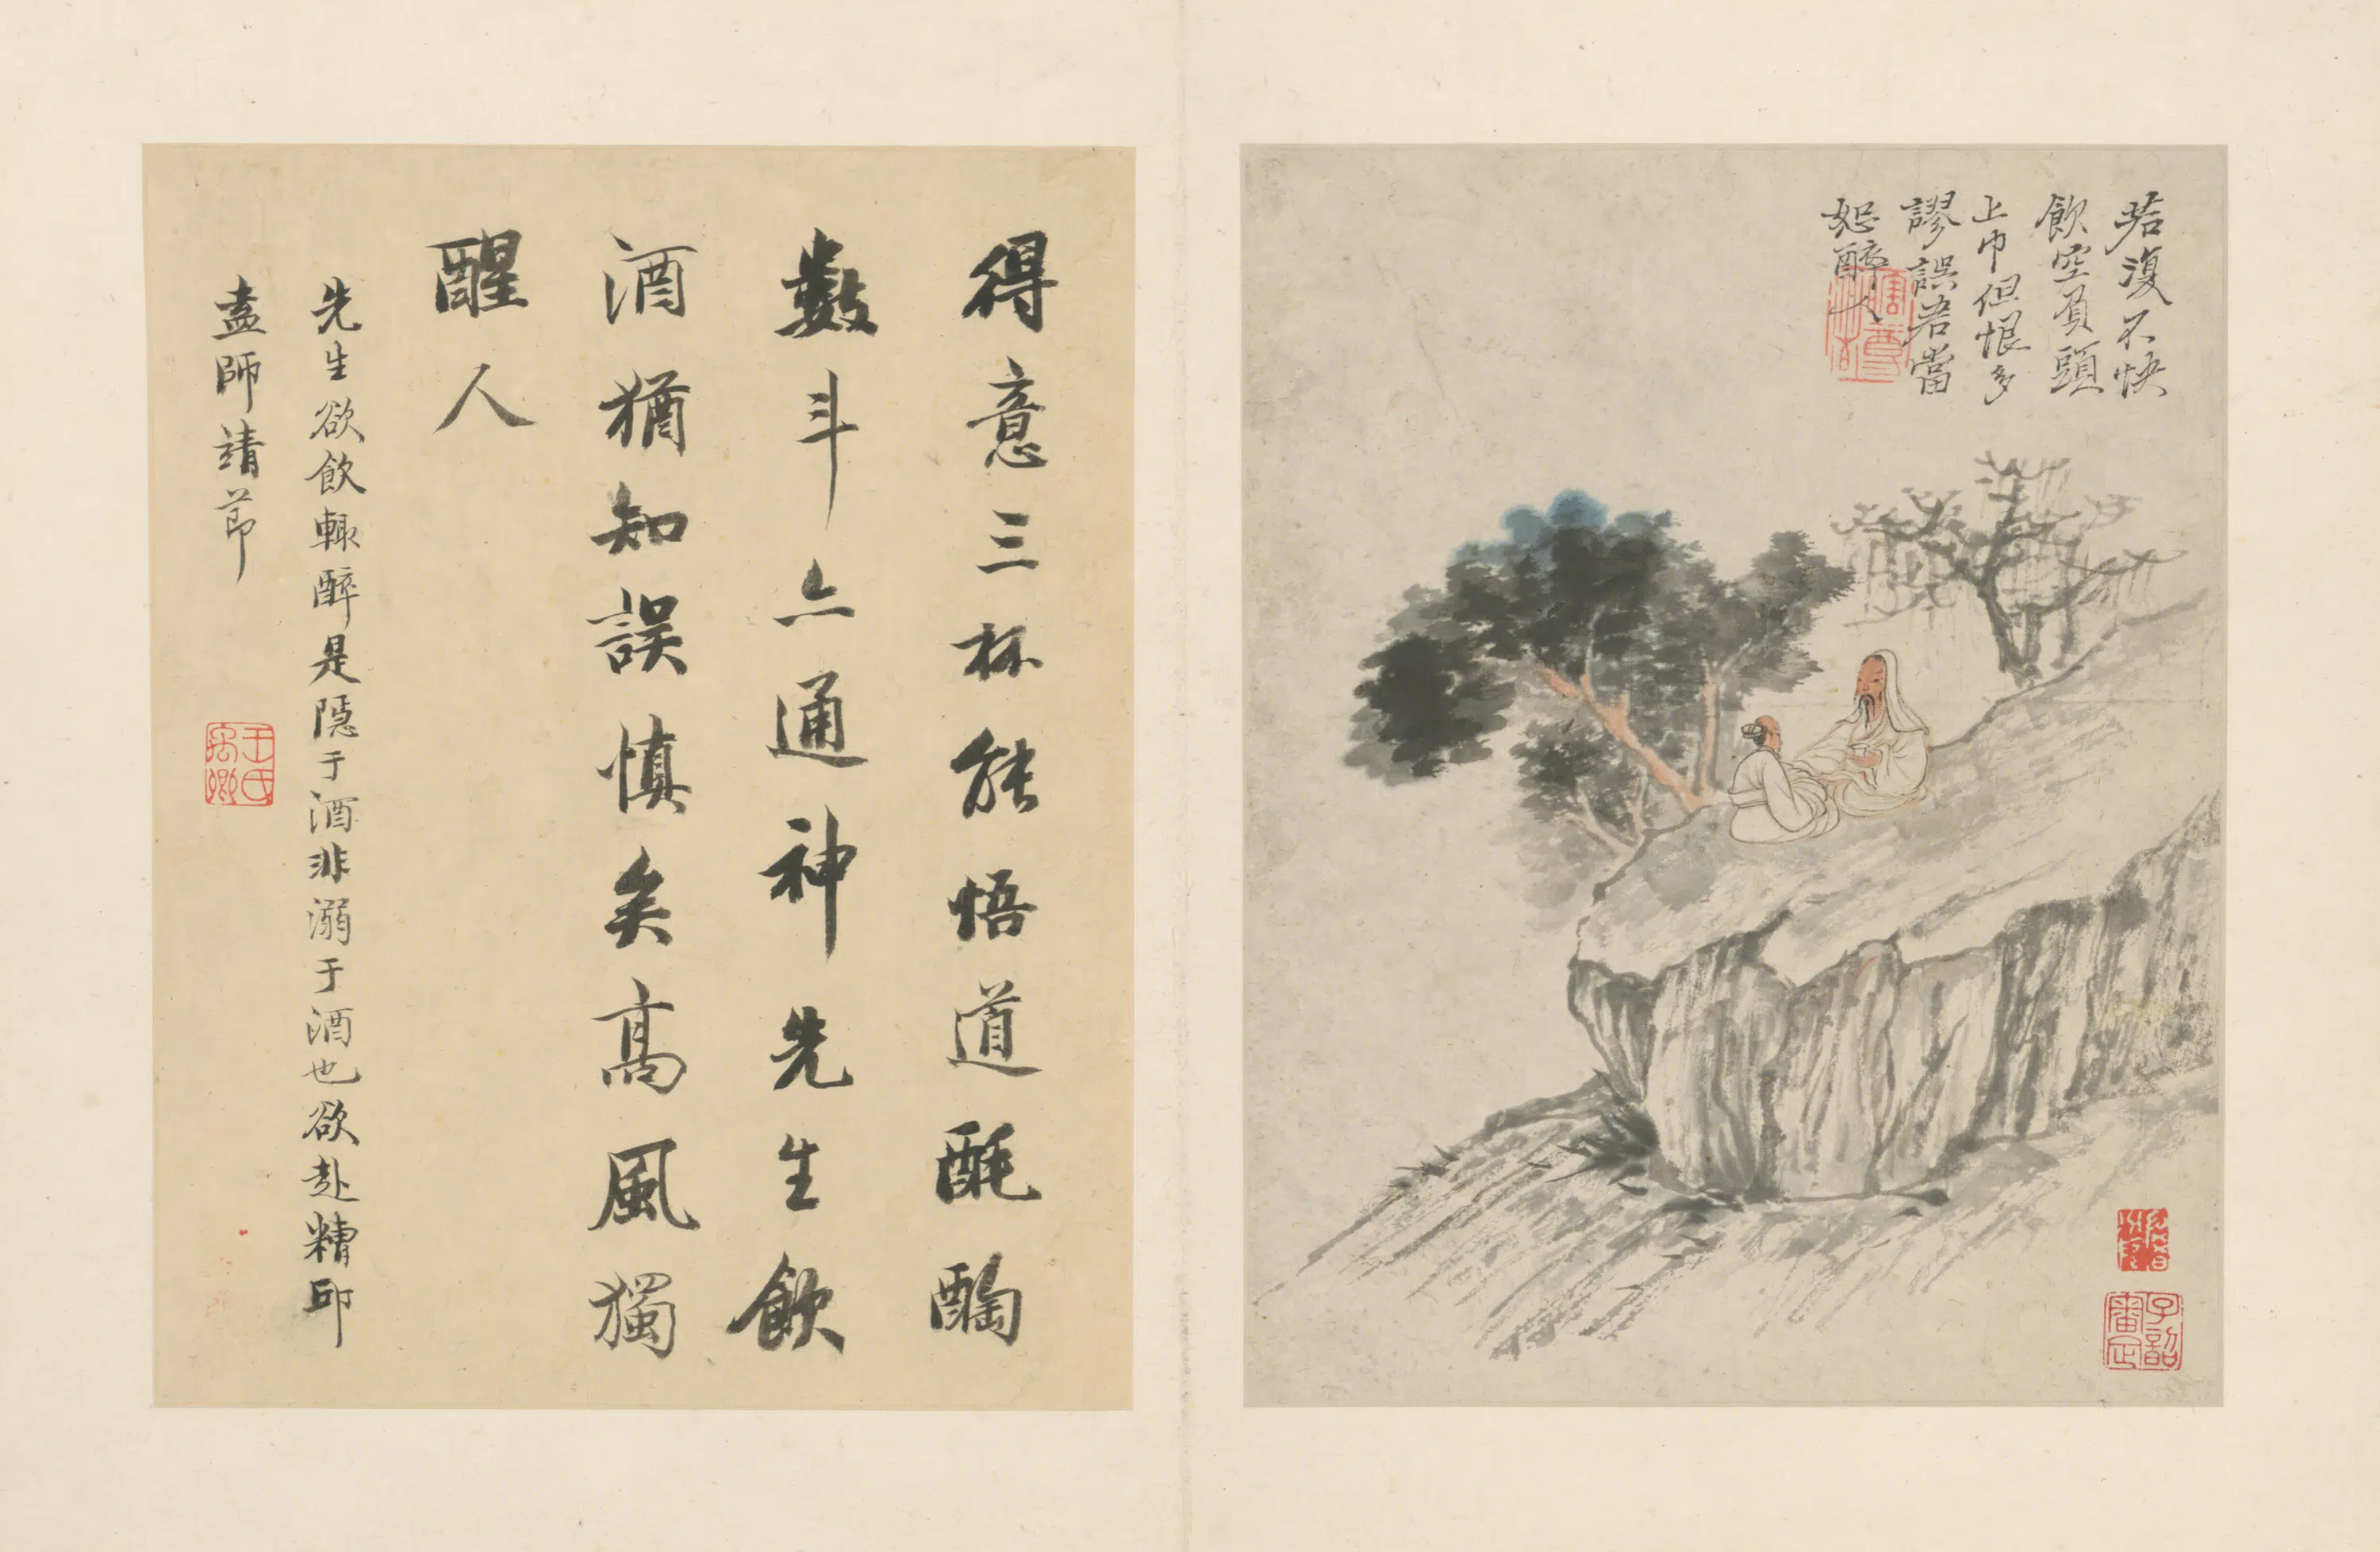 若復不快
飲空負頭
上巾但恨多
謬誤君當
恕醉人
子韶審定
得意三杯能悟道酕醄
數斗亦通神先生飲
酒猶知誤慎矣高風獨
醒人
先生欲飲輒醉是隱于酒非溺于酒也欲赴糟邱
盍師靖節
王氏禹卿